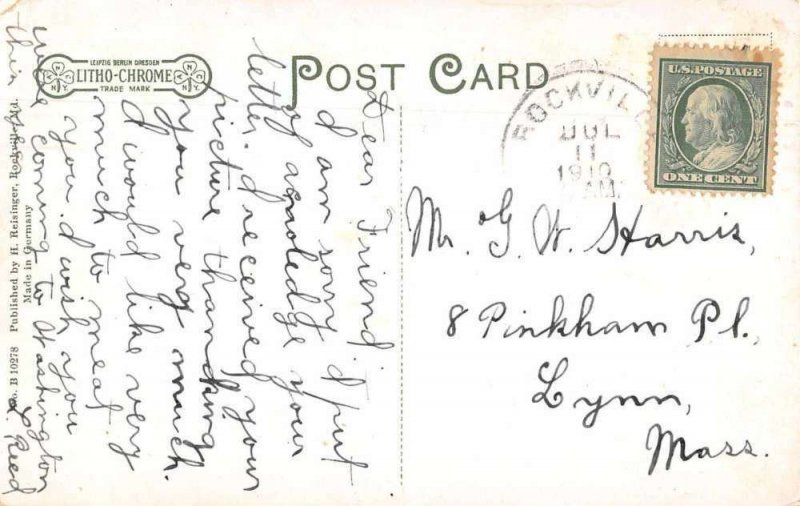 LEIPZIG BERLIN DRESDEN
LITHO-CHROME
TRADE MARK
POST CARD
ROCKVILL
JUL
11
1910
AM.
U.S. POSTAGE
ONE CENT
Mr. G. W. Harris,
8 Pinkham Pl.,
Lynn,
Mass.
Dear Friend.
I am sorry I put
of acnoledge your
letter. I received your
picture thanking
you very much.
I would like very
much to meat
you. I wish you
were coming to Washington
this
L Reed
Published by H. Reisinger, Rockville, Md.
Made in Germany
No. B 10278